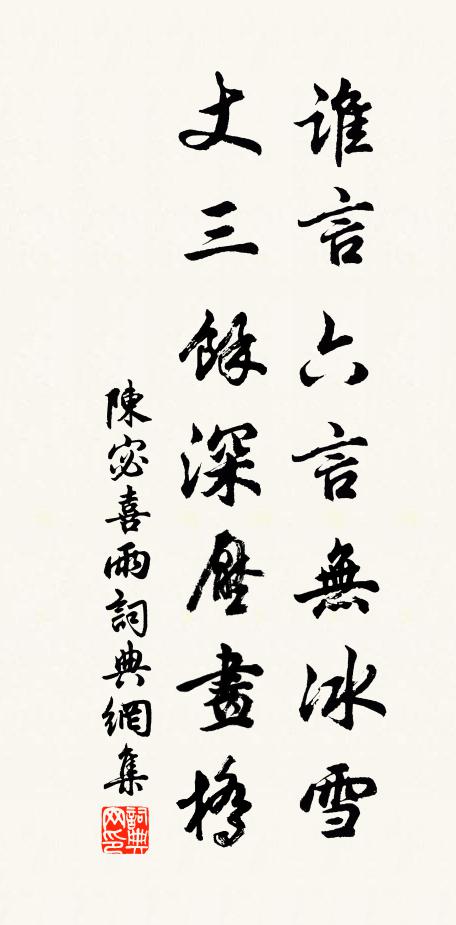 誰言六言無冰雪
丈三餘深壓畫橋
陳宓喜雨詞典網集
詞典网印